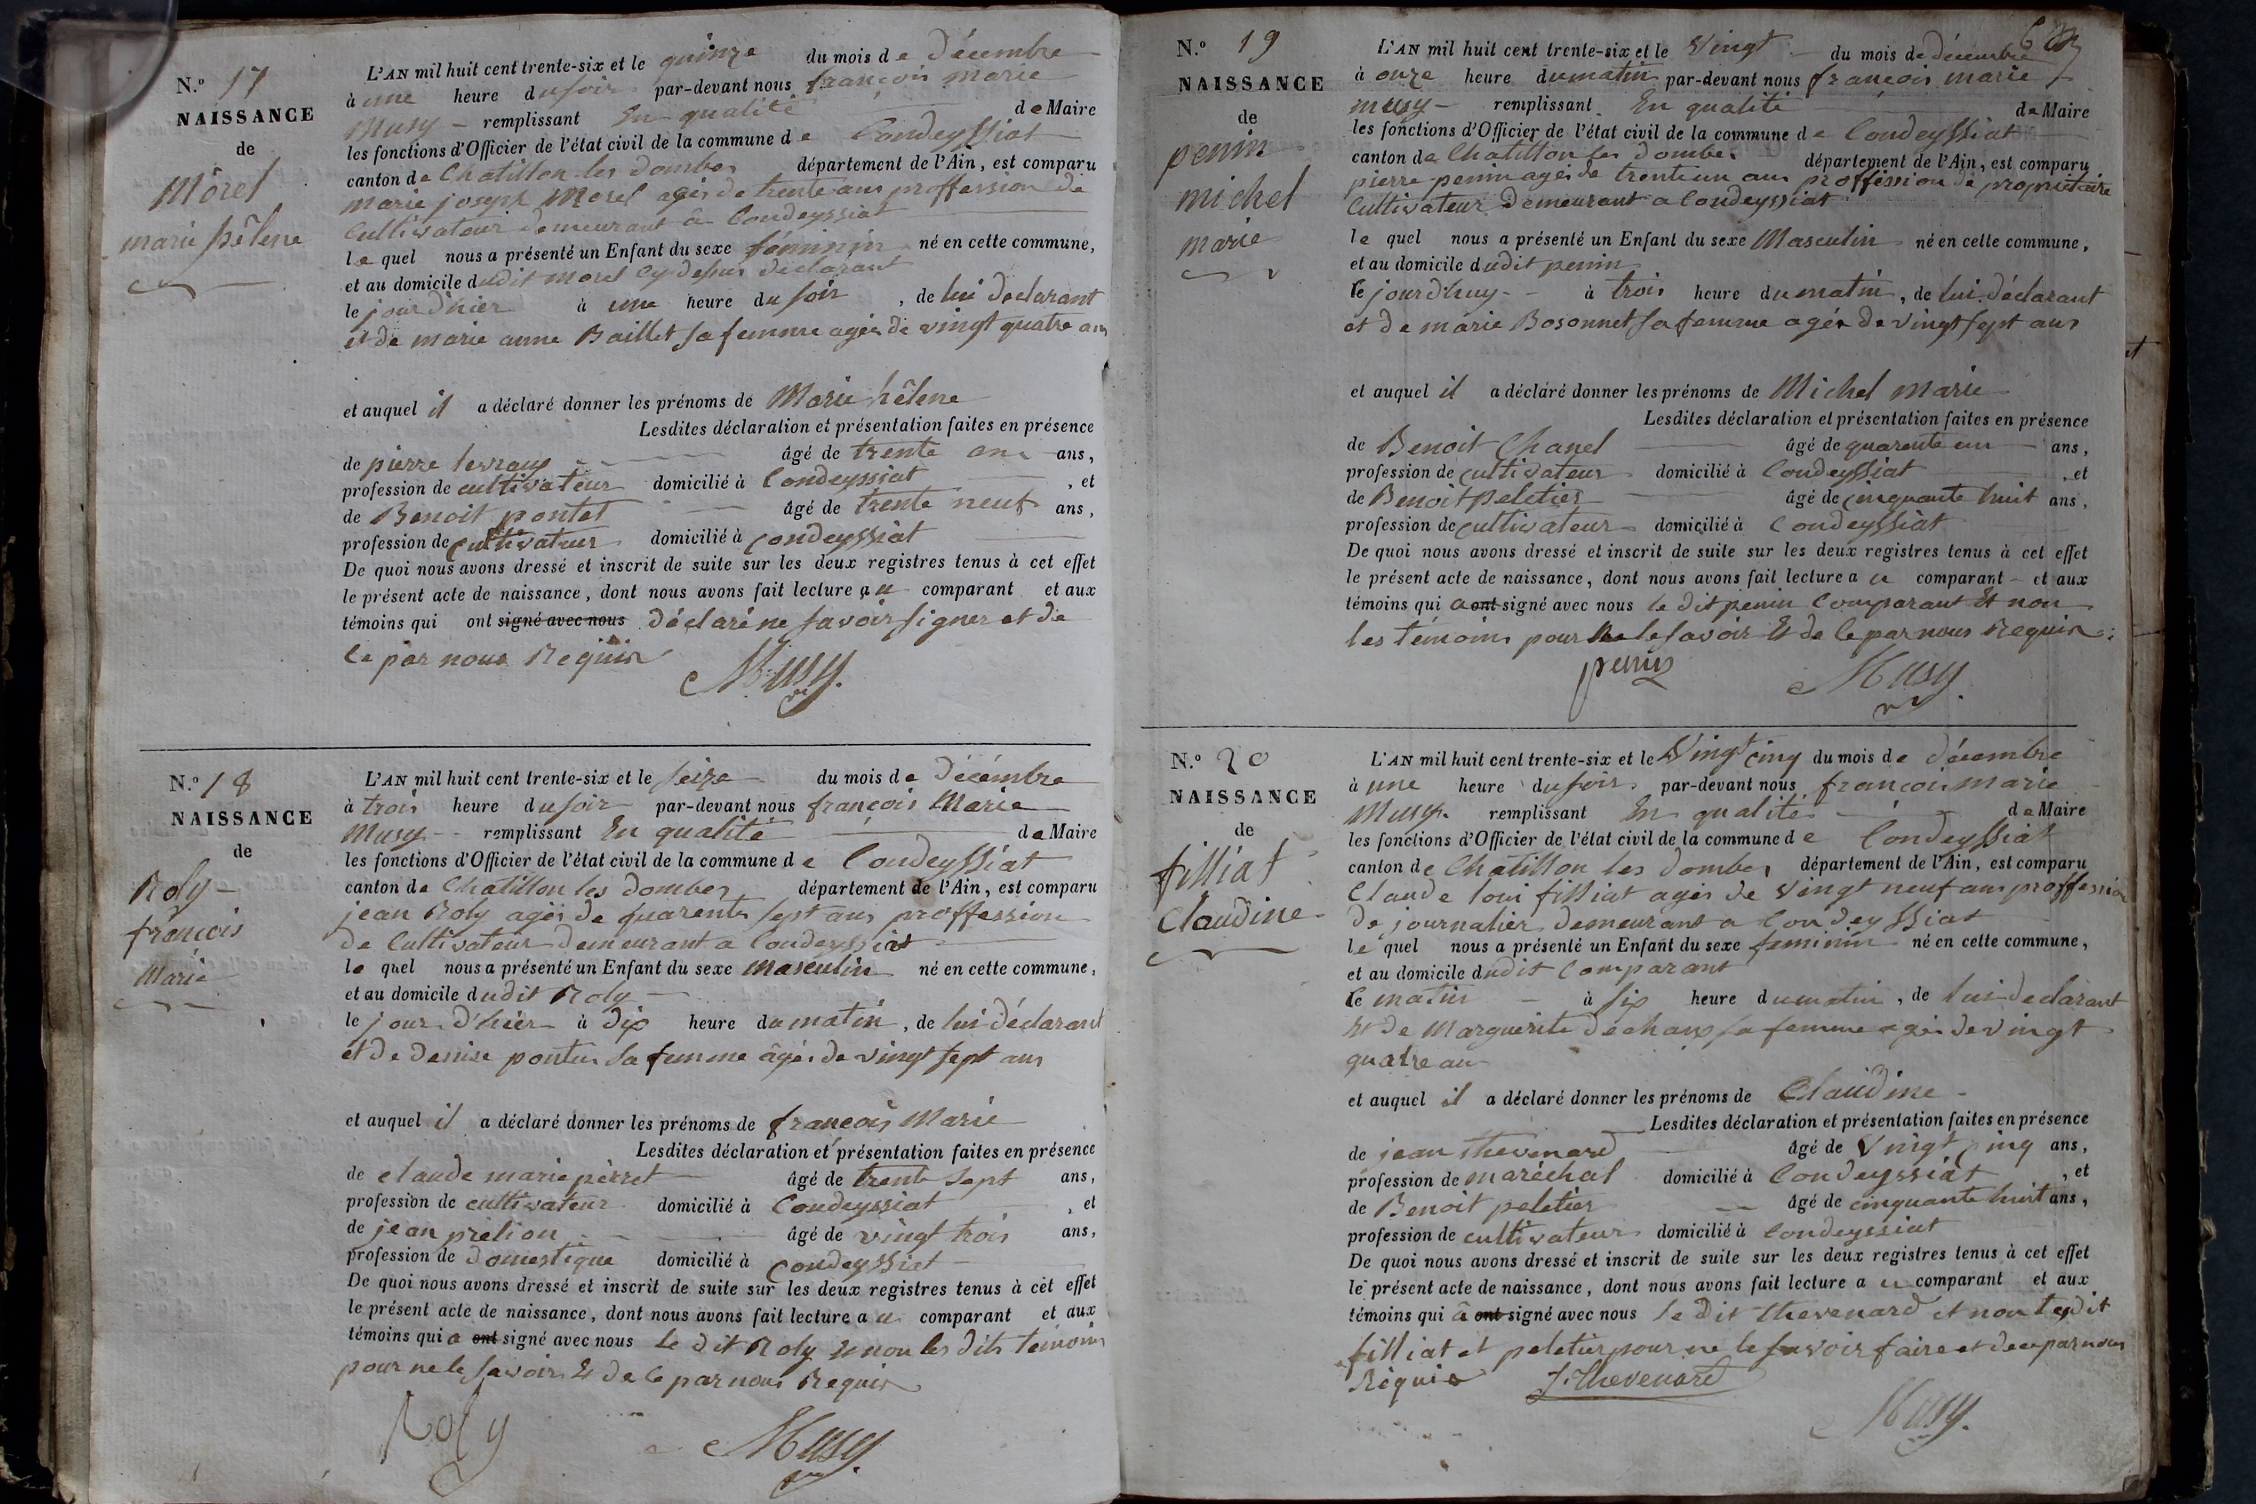 N.º 17
NAISSANCE
de
Morel
marie hêlene
L'AN mil huit cent trente-six et le quinze du mois de Décembre
à une heure du soir par-devant nous françois marie
Musy remplissant En qualité de Maire
les fonctions d'Officier de l'état civil de la commune de Condeyssiat
canton de Chatillon les Dombes département de l'Ain, est comparu
marie joseph Morel agés de trente ans proffession de
Cultivateur demeurant à Condeyssiat
le quel nous a présenté un Enfant du sexe féminin né en cette commune,
et au domicile dudit morel cy dessus déclarant
le jour d'hier à une heure du soir, de lui déclarant
et de marie anne Baillet sa femme agés de vingt quatre ans
et auquel il a déclaré donner les prénoms de Marie hêlene
Lesdites déclaration et présentation faites en présence
de pierre âgé de trente ans,
profession de cultivateur domicilié à Condeyssiat, et
de Benoit pontet âgé de trente neuf ans,
profession de cultivateur domicilié à Condeyssiat
De quoi nous avons dressé et inscrit de suite sur les deux registres tenus à cet effet
le présent acte de naissance, dont nous avons fait lecture au comparant et aux
témoins qui ont signé avec nous déclaré ne savoir signer et de
ce par nous Requis
Musy.
N.º 18
NAISSANCE
de
Roly
françois
Marie
L'AN mil huit cent trente-six et le seize du mois de Décémbre
à trois heure du soir par-devant nous françois Marie
Musy remplissant En qualité de Maire
les fonctions d'Officier de l'état civil de la commune de Condeyssiat
canton de Chatillon les Dombes département de l'Ain, est comparu
jean Roly agés de quarente sept ans proffession
de Cultivateur demeurant a Condeyssiat
le quel nous a présenté un Enfant du sexe masculin né en cette commune,
et au domicile dudit Roly
le jour d'hier à dix heure du matin, de lui déclarant
et de denise pontus sa femme âgés de vingt sept ans
et auquel il a déclaré donner les prénoms de françois Marie
Lesdites déclaration et présentation faites en présence
de claude marie pèrret âgé de trente sept ans,
profession de cultivateur domicilié à Condeyssiat, et
de jean prélion âgé de vingt trois ans,
profession de domestique domicilié à Condeyssiat
De quoi nous avons dressé et inscrit de suite sur les deux registres tenus à cet effet
le présent acte de naissance, dont nous avons fait lecture au comparant et aux
témoins qui a ont signé avec nous le dit Roly et non les dits témoins
pour ne le savoir Et de ce par nous Requis
Roly
Musy.
N.º 19
NAISSANCE
de
penin
michel
marie
L'AN mil huit cent trente-six et le Vingt du mois de décembre
à onze heure du matin par-devant nous françois marie
musy remplissant En qualité de Maire
les fonctions d'Officier de l'état civil de la commune de Condeyssiat
canton de Chatillon les Dombes département de l'Ain, est comparu
pierre penin agés de trente un ans proffession de propriétaire
Cultivateur Demeurant a Condeyssiat
le quel nous a présenté un Enfant du sexe Masculin né en cette commune,
et au domicile dudit penin
le jourd'huy à trois heure du matin, de lui déclarant
et de marie Bosonnet sa femme agée de vingt sept ans
et auquel il a déclaré donner les prénoms de Michel marie
Lesdites déclaration et présentation faites en présence
de Benoit Chanel âgé de quarente un ans,
profession de cultivateur domicilié à Condeyssiat, et
de Benoit peletier âgé de cinquante huit ans,
profession de cultivateur domicilié à Condeyssiat
De quoi nous avons dressé et inscrit de suite sur les deux registres tenus à cet effet
le présent acte de naissance, dont nous avons fait lecture au comparant et aux
témoins qui a ont signé avec nous le dit penin Comparant Et non
les témoins pour Ne le savoir Et de ce par nous Requis.
penin
Musy.
N.º 20
NAISSANCE
de
filliat
Claudine
L'AN mil huit cent trente-six et le Vingt cinq du mois de décembre
à une heure du soir par-devant nous françois marie
Musy remplissant En qualité de Maire
les fonctions d'Officier de l'état civil de la commune de Condeyssiat
canton de Chatillon les Dombes département de l'Ain, est comparu
Claude loui filliat agés de vingt neuf ans proffession
de journalier demeurant a Condeyssiat
le quel nous a présenté un Enfant du sexe feminin né en cette commune,
et au domicile dudit Comparant
le matin à six heure du matin, de lui déclarant
Et de Marguerite dechaux sa femme agés de vingt
quatre ans
et auquel il a déclaré donner les prénoms de Claudine
Lesdites déclaration et présentation faites en présence
de jean thevenard âgé de Vingt cinq ans,
profession de maréchal domicilié à Condeyssiat, et
de Benoit peletier âgé de cinquante huit ans,
profession de cultivateur domicilié à Condeyssiat
De quoi nous avons dressé et inscrit de suite sur les deux registres tenus à cet effet
le présent acte de naissance, dont nous avons fait lecture au comparant et aux
témoins qui a ont signé avec nous le dit thevenard et non lesdit
filliat et peletier pour ne le savoir faire et de ce par nous
Réquis
J. Thevenard
Musy.